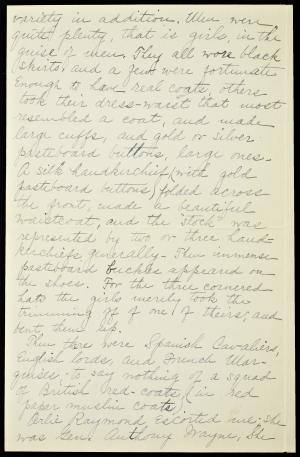 variety in addition. Men were
quite plenty, that is girls, in "the
guise of men." They all wore black
skirts, and a few were fortunate
enough to have real coats, others
took their dress-waist that most
resembled a coat, and made
large cuffs, and gold or silver
pasteboard buttons, large ones.
A silk handkerchief (with gold
pasteboard buttons) folded across
the front, made a beautiful
waistcoat, and the "stock" was
represented by two or three hand-
kerchiefs, generally. Then immense
pasteboard buckles appeared on
the shoes. For the three cornered
hats the girls merely took the
trimming off of one of theirs, and
bent them up.
Then there were Spanish Cavaliers,
English lords, and French Mar-
quises - to say nothing of a squad
of British red-coats, (in red
paper muslin coats)
Orlie Raymond escorted me - she
was Gen. Anthony Wayne, She